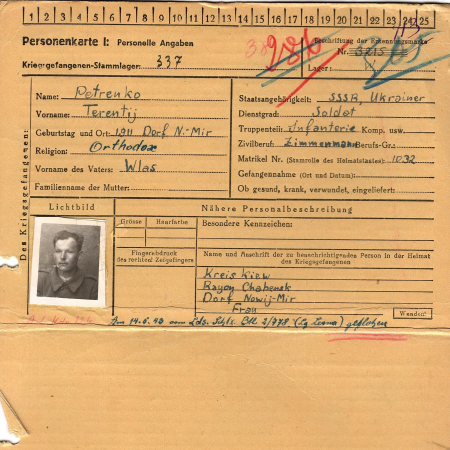 1 2 3 4 5 6 7 8 9 10 11 12 13 14 15 16 17 18 19 20 21 22 23 24 25
Personenkarte I: Personelle Angaben
Kriegsgefangenen-Stammlager: 337
Beschriftung der Erkennungsmarke
Nr. 3215
Lager:
Des Kriegsgefangenen:
Name: Petrenko
Vorname: Terentij
Geburtstag und Ort: 1911 Dorf N.-Mir
Religion: Orthodox
Vorname des Vaters: Wlas
Familienname der Mutter:
Staatsangehörigkeit: SSSR, Ukrainer
Dienstgrad: Soldat
Truppenteil: Infanterie Komp. usw.
Zivilberuf: Zimmermann Berufs-Gr.:
Matrikel Nr. (Stammrolle des Heimatstaates): 1032
Gefangennahme (Ort und Datum):
Ob gesund, krank, verwundet, eingeliefert:
Lichtbild
Nähere Personalbeschreibung
Grösse
Haarfarbe
Besondere Kennzeichen:
Fingerabdruck
des rechten! Zeigefingers
Name und Anschrift der zu benachrichtigenden Person in der Heimat
des Kriegsgefangenen
Kreis Kiew
Rayon Chabenek
Dorf Nowij-Mir
Frau
Wenden!
Am 14.6.43 vom geflohen